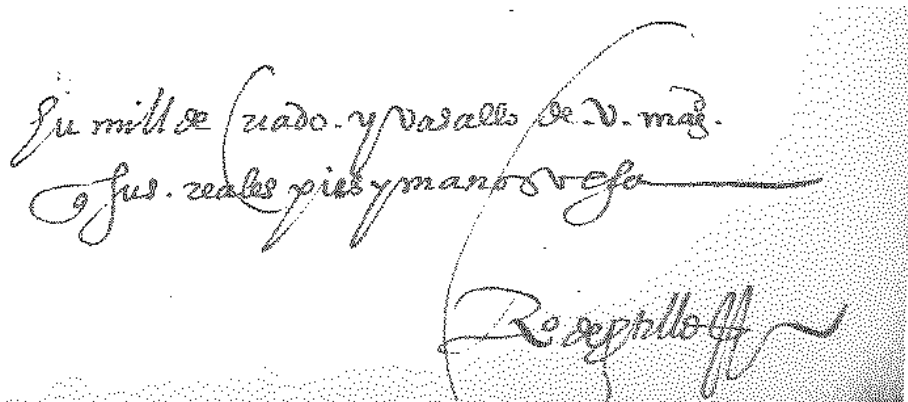 humillde criado. y vasallo de. V. mag.
q sus. reales pies y manos vesa
Ro de